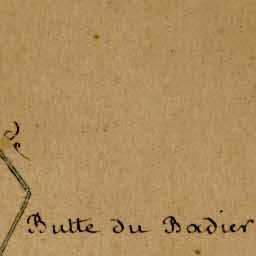 de
Butte du Badier